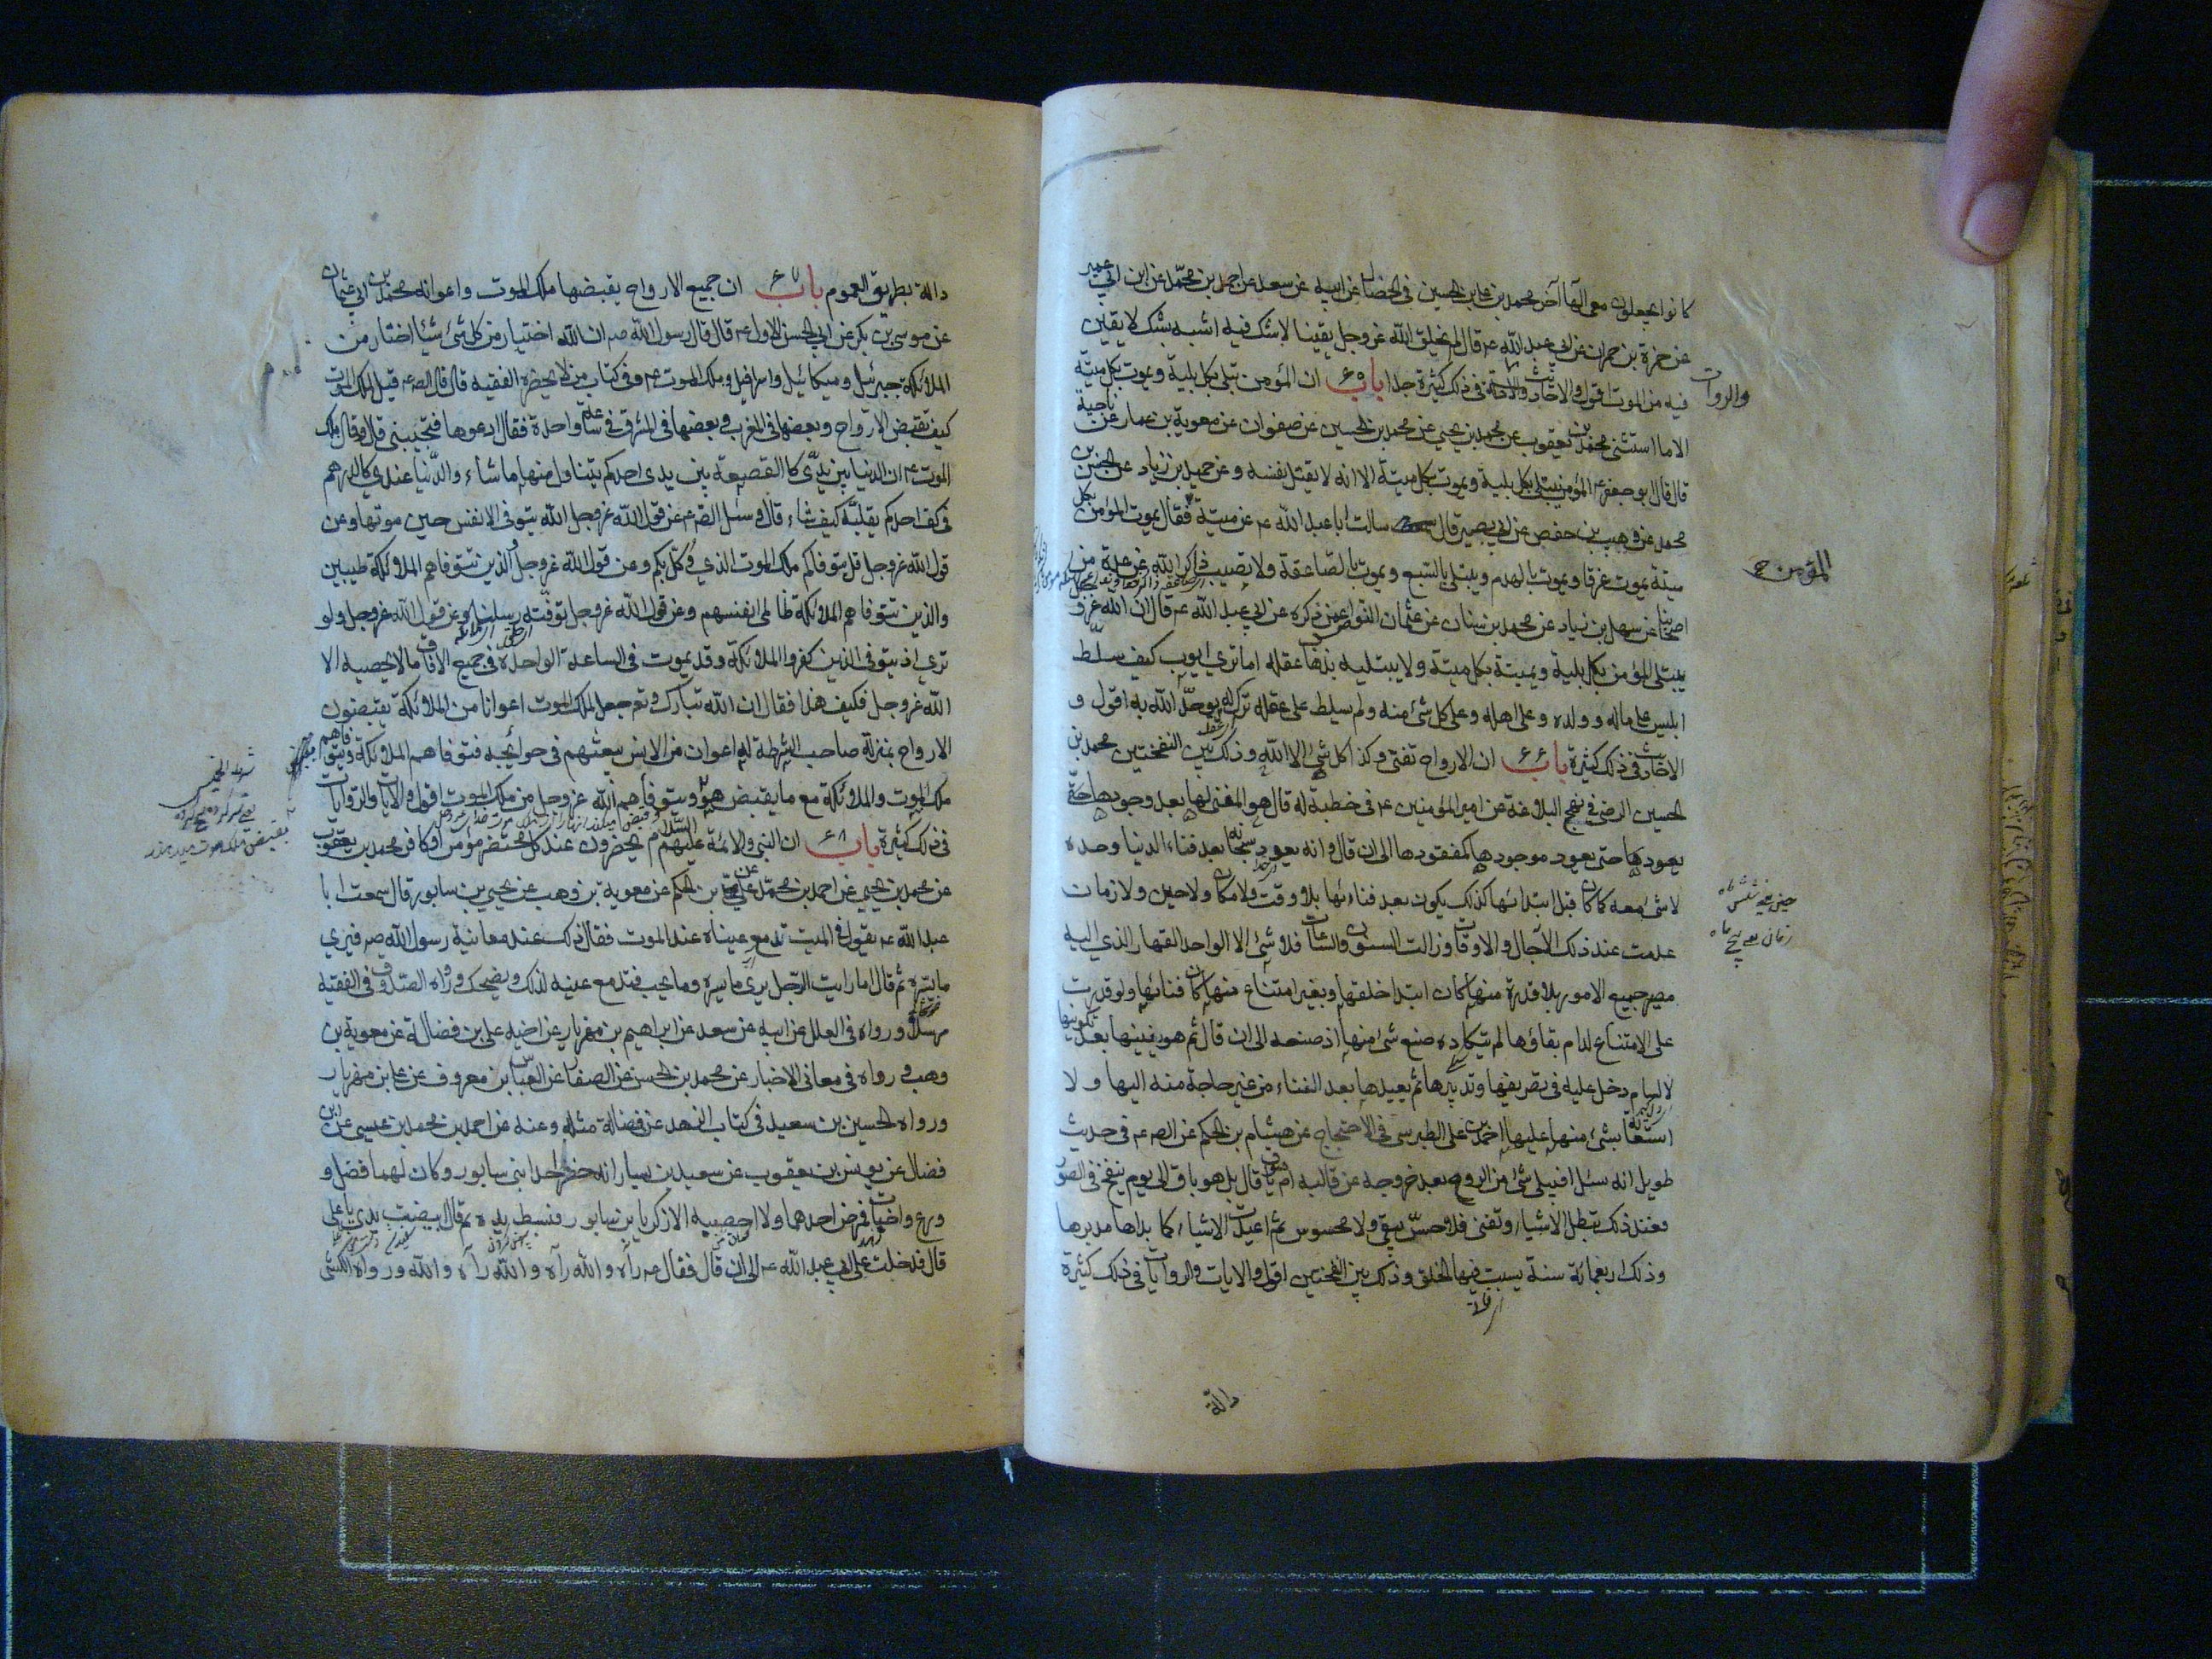 كانوا يجعلون مع الله الها آخر محمد بن علي بن الحسين في الخصال عن ابيه عن سعد عن احمد بن محمد عن ابن ابي عمير
عن حمزة بن حمران عن ابي عبد الله ع قال لم يخلق الله عز وجل يقينا لا شك فيه اشبه بشك لا يقين
فيه من الموت اقول والاحاديث والادلة في ذلك كثيرة جدا باب ٦٥ ان المؤمن يبتلى بكل بلية ويموت بكل ميتة
الا ما استثنى محمد بن يعقوب عن محمد بن يحيى عن محمد بن الحسين عن صفوان عن معوية بن عمار عن ناجية
قال قال ابو جعفر ع المؤمن يبتلى بكل بلية ويموت بكل ميتة الا انه لا يقتل نفسه وعن حميد بن زياد عن الحسن بن
محمد عن وهيب بن حفص عن ابي بصير قال سالت ابا عبد الله ع عن ميتة فقال يموت المؤمن بكل
ميتة يموت غرقا ويموت بالهدم ويبتلى بالسبع ويموت بالصاعقة ولا تصيب ذاكر الله وعن عدة من
اصحابنا عن سهل بن زياد عن محمد بن سنان عن عثمان النوا عمن ذكره عن ابي عبد الله ع قال ان الله عز و
يبتلى المؤمن بكل بلية ويميته بكل ميتة ولا يبتليه بذهاب عقله اما ترى ايوب كيف سلط
ابليس على ماله وولده وعلى اهله وعلى كل شئ منه ولم يسلط على عقله ترك له يوحد الله به اقول و
الاحاديث في ذلك كثيرة باب ٦٦ ان الارواح تفنى وكذا كل شئ الا الله وذلك بين النفختين محمد بن
الحسين الرضي في نهج البلاغة عن امير المؤمنين ع في خطبة له قال هو المفنى لها بعد وجودها حتى
يعود موجودها كمفقودها الى ان قال وانه يعود سبحانه بعد فناء الدنيا وحده
لا شئ معه كما كان قبل ابتدائها كذلك يكون بعد فنائها بلا وقت ولا مكان ولا حين ولا زمان
عدمت عند ذلك الآجال والاوقات وزالت السنون والساعات فلا شئ الا الواحد القهار الذي اليه
مصير جميع الامور بلا قدرة منها كان ابتداء خلقها وبغير امتناع منها كان فنائها ولو قدرت
على الامتناع لدام بقاؤها لم يتكاده صنع شئ منها اذ صنعه الى ان قال ثم هو يفنيها بعد تكوينها
لا لسام دخل عليه في تصريفها وتدبيرها ثم يعيدها بعد الفناء من غير حاجة منه اليها ولا
استعانة بشئ منها عليها احمد بن علي الطبرسي في الاحتجاج عن هشام بن الحكم عن الص ع في حديث
طويل انه سئل افيتلاشى الروح بعد خروجه عن قالبه ام باق قال بل هو باق الى يوم ينفخ في الصور
فعند ذلك تبطل الاشياء وتفنى فلا حس يبقى ولا محسوس ثم اعيدت الاشياء كما بداها مدبرها
وذلك اربعمائة سنة يسبت فيها الخلق وذلك بين النفختين اقول والايات والروايات في ذلك كثيرة
والروايات
المؤمن ح
دالة
دالة بطريق العموم باب ٦٧ ان جميع الارواح يقبضها ملك الموت واعوانه محمد بن ابي عثمان
عن موسى بن بكر عن ابي الحسن الاول ع قال قال رسول الله ص ان الله اختيار من كل شئ شيئا اختار من
الملائكة جبرئيل وميكائيل واسرافيل وملك الموت ع وفي كتاب من لا يحضره الفقيه قال قال الص ع قيل لملك الموت
كيف تقبض الارواح وبعضها في المغرب وبعضها في المشرق في ساعة واحدة فقال ادعوها فتجيبني قال وقال ملك
الموت ع ان الدنيا بين يدى كالقصعة بين يدى احدكم يتناول منها ما شاء والدنيا عندي كالدرهم
في كف احدكم يقلبه كيف شاء قال وسئل الص ع عن قول الله عز وجل الله يتوفى الانفس حين موتها وعن
قول الله عز وجل قل يتوفاكم ملك الموت الذي وكل بكم وعن قول الله عز وجل الذين تتوفاهم الملائكة طيبين
والذين تتوفاهم الملائكة ظالمي انفسهم وعن قول الله عز وجل توفته رسلنا وعن قول الله عز وجل ولو
ترى اذ يتوفى الذين كفروا الملائكة وقد يموت في الساعة الواحدة في جميع الافاق ما لا يحصيه الا
الله عز وجل فكيف هذا فقال ان الله تبارك وتع جعل لملك الموت اعوانا من الملائكة يقبضون
الارواح بمنزلة صاحب الشرطة له اعوان من الانس يبعثهم في حوائجه فتوفاهم الملائكة ويتوفاهم
ملك الموت والملائكة مع ما يقبض هو ويتوفاهم الله عز وجل من ملك الموت اقول والايات والروايات
في ذلك كثيرة باب ٦٨ ان النبي والائمة عليهم السلام يحضرون عند كل محتضر مؤمن او كافر محمد بن يعقوب
عن محمد بن يحيى عن احمد بن محمد عن علي بن الحكم عن معوية بن وهب عن يحيى بن سابور قال سمعت ابا
عبد الله ع يقول في الميت تدمع عيناه عند الموت فقال ذلك عند معاينة رسول الله ص فيرى
ما يسره ثم قال اما رايت الرجل يرى ما يسره وما يحب فتدمع عينه لذلك ويضحك ورواه الصدوق في الفقيه
مرسلا ورواه في العلل عن ابيه عن سعد عن ابراهيم بن مهزيار عن اخيه علي بن فضالة عن معوية بن
وهب ورواه في معاني الاخبار عن محمد بن الحسن عن الصفار عن العباس بن معروف عن علي بن مهزيار
ورواه الحسين بن سعيد في كتاب الزهد عن فضالة مثله وعنه عن احمد بن محمد بن عيسى عن ابن
فضال عن يونس بن يعقوب عن سعيد بن يسار انه حضر احد ابني سابور وكان لهما فضل و
ورع واخبات فمرض احدهما ولا احسبه الا زكريا بن سابور فبسط يده ثم قال ابيضت يدي يا علي
قال فدخلت على ابي عبد الله ع الى ان قال فقال ع رآه والله رآه والله رآه والله ورواه الكشي